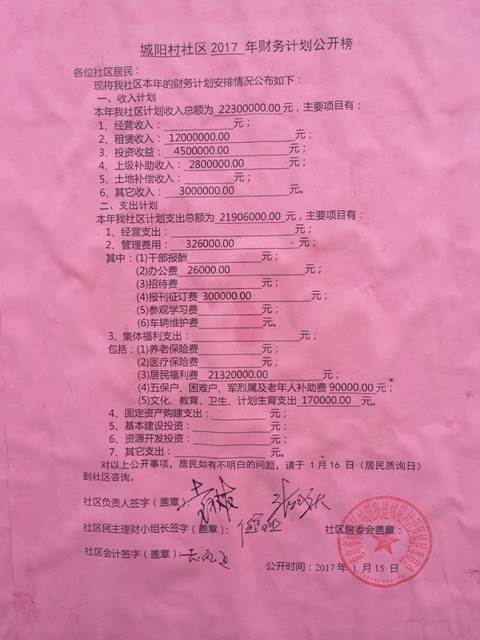 城阳村社区 2017 年财务计划公开榜
各位社区居民：
现将我社区本年的财务计划安排情况公布如下：
一、收入计划
本年我社区计划收入总额为 22300000.00 元，主要项目有：
1、经营收入：元；
2、租赁收入：12000000.00元；
3、投资收益：4500000.00元；
4、上级补助收入：2800000.00元；
5、土地补偿收入：元；
6、其它收入：3000000.00元。
二、支出计划
本年我社区计划支出总额为 21906000.00 元，主要项目有：
1、经营支出：元；
2、管理费用：326000.00元；
其中：(1)干部报酬元；
(2)办公费 26000.00元；
(3)招待费元；
(4)报刊征订费 300000.00元；
(5)参观学习费元；
(6)车辆维护费元；
3、集体福利支出：元；
包括：(1)养老保险费元；
(2)医疗保险费元；
(3)居民福利费 21320000.00元；
(4)五保户、困难户、军烈属及老年人补助费 90000.00 元；
(5)文化、教育、卫生、计划生育支出 170000.00元。
4、固定资产购建支出：元；
5、基本建设投资：元；
6、资源开发投资：元；
7、其它支出：元。
对以上公开事项，居民如有不明白的问题，请于 1 月 16 日（居民质询日）
到社区咨询。
社区负责人签字（盖章）
社区民主理财小组长签字（盖章） 社区居委会盖章：
社区会计签字（盖章）
公开时间：2017 年 1 月 15 日